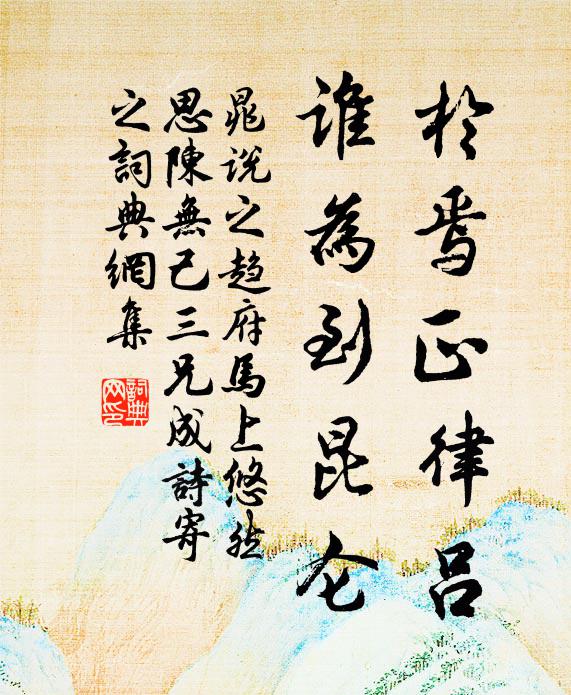 於焉正律呂
谁為到昆仑
晁说之趋府馬上悠然
思陳無己三兄成詩寄
之詞典網集
詞典网印